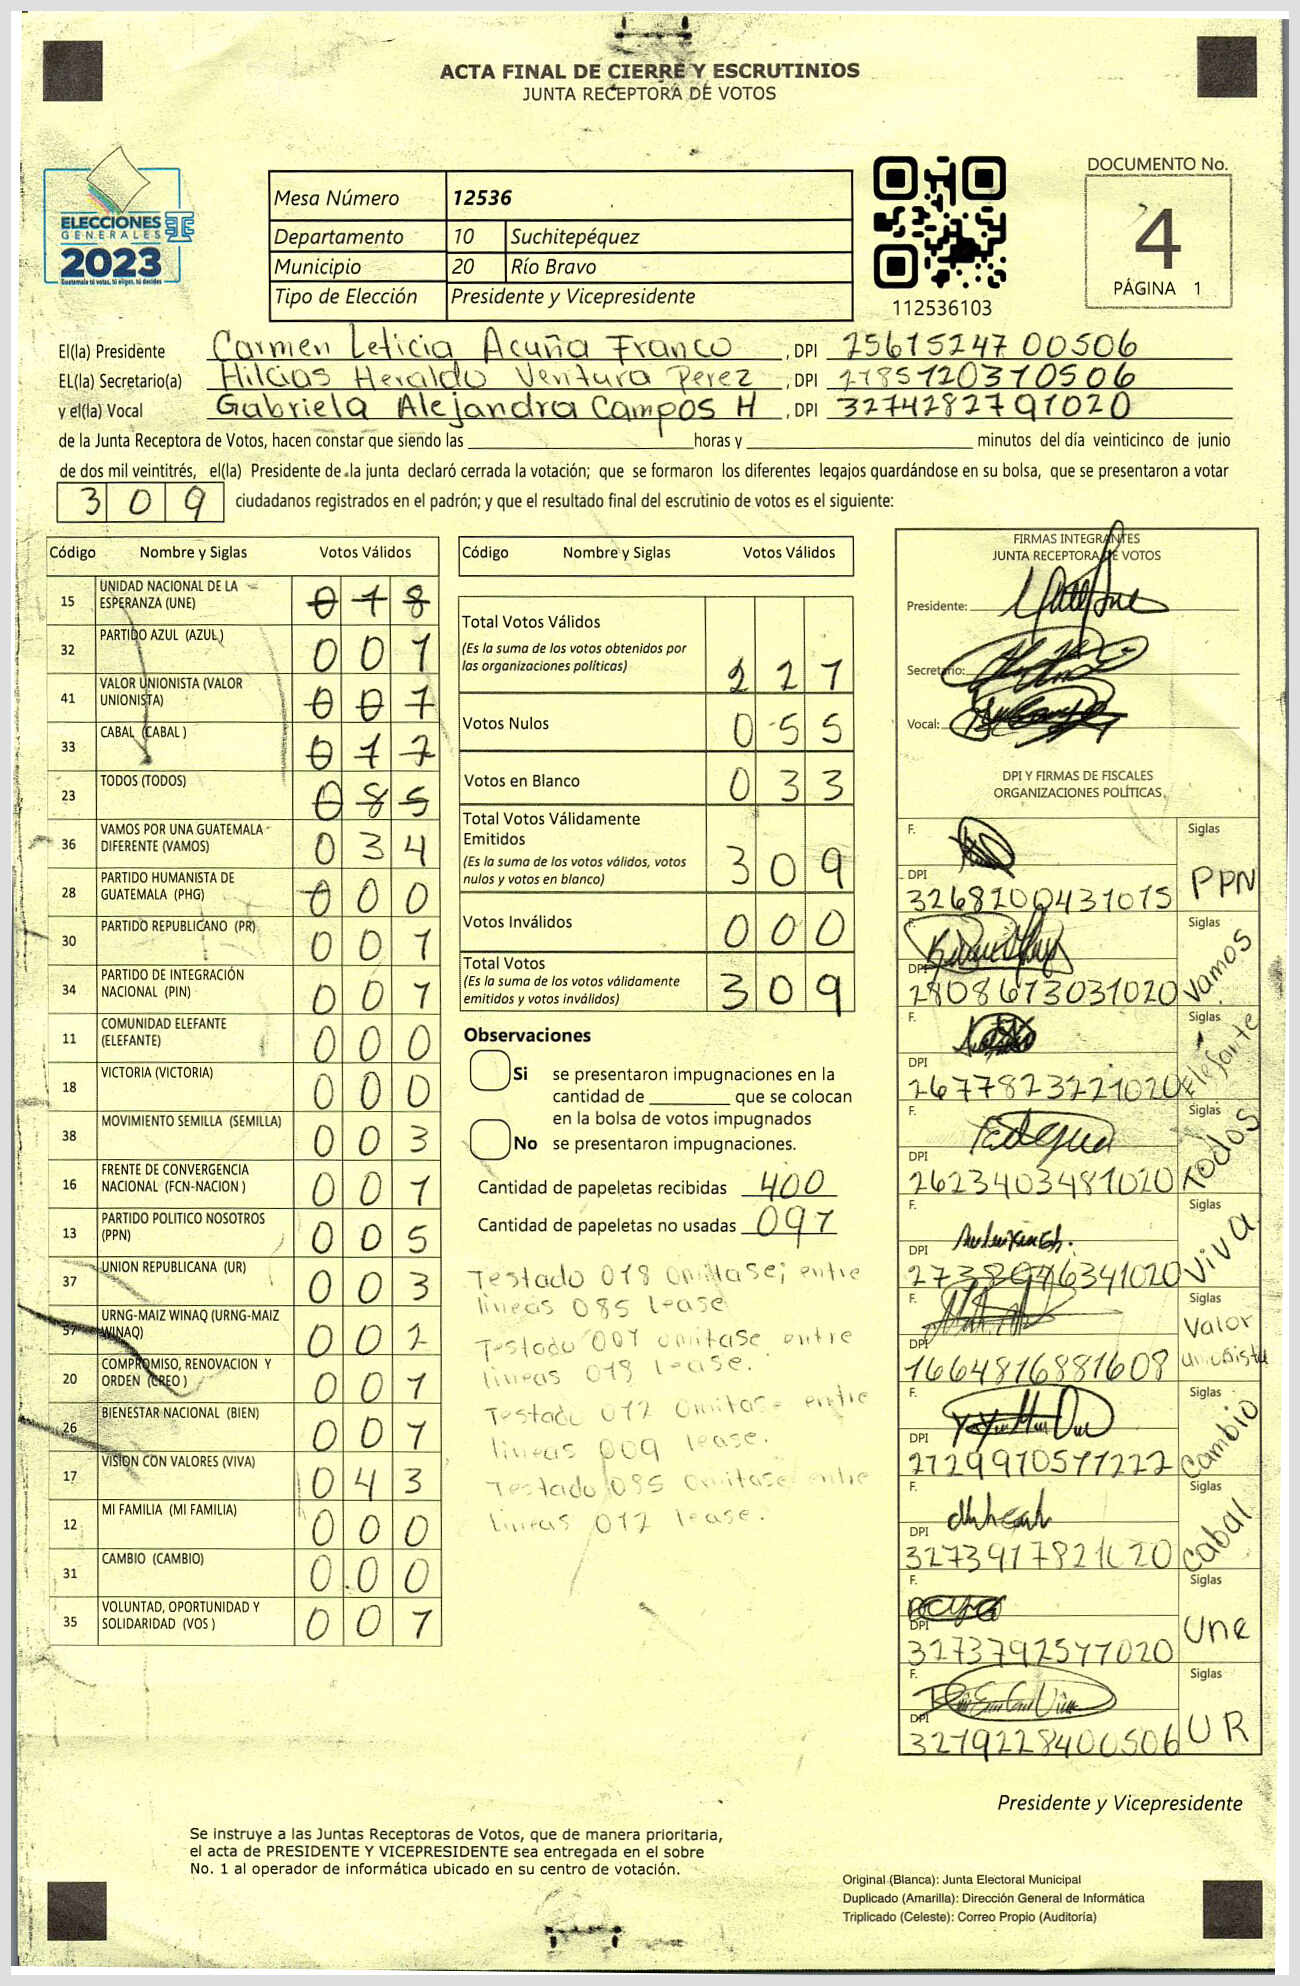 ACTA FINAL DE CIERRE Y ESCRUTINIOS
JUNTA RECEPTORA DE VOTOS
ELECCIONES
GENERALES
2023
Guatemala tú votas, tú eliges, tú decides
Mesa Número 12536
Departamento 10 Suchitepéquez
Municipio 20 Río Bravo
Tipo de Elección Presidente y Vicepresidente
112536103
DOCUMENTO No.
4
PÁGINA 1
El(la) Presidente Carmen Leticia Acuña Franco, DPI 2561524700506
EL(la) Secretario(a) Hilcias Heraldo Ventura Perez, DPI 2785120310506
y el(la) Vocal Gabriela Alejandra Campos H, DPI 3274282791020
de la Junta Receptora de Votos, hacen constar que siendo las horas y minutos del día veinticinco de junio
de dos mil veintitrés, el(la) Presidente de la junta declaró cerrada la votación; que se formaron los diferentes legajos quardándose en su bolsa, que se presentaron a votar
309 ciudadanos registrados en el padrón; y que el resultado final del escrutinio de votos es el siguiente:
Código Nombre y Siglas Votos Válidos
15 UNIDAD NACIONAL DE LA ESPERANZA (UNE) 018
32 PARTIDO AZUL (AZUL) 001
41 VALOR UNIONISTA (VALOR UNIONISTA) 007
33 CABAL (CABAL) 012
23 TODOS (TODOS) 085
36 VAMOS POR UNA GUATEMALA DIFERENTE (VAMOS) 034
28 PARTIDO HUMANISTA DE GUATEMALA (PHG) 000
30 PARTIDO REPUBLICANO (PR) 001
34 PARTIDO DE INTEGRACIÓN NACIONAL (PIN) 001
11 COMUNIDAD ELEFANTE (ELEFANTE) 000
18 VICTORIA (VICTORIA) 000
38 MOVIMIENTO SEMILLA (SEMILLA) 003
16 FRENTE DE CONVERGENCIA NACIONAL (FCN-NACION) 001
13 PARTIDO POLITICO NOSOTROS (PPN) 005
37 UNION REPUBLICANA (UR) 003
57 URNG-MAIZ WINAQ (URNG-MAIZ WINAQ) 002
20 COMPROMISO, RENOVACION Y ORDEN (CREO) 001
26 BIENESTAR NACIONAL (BIEN) 001
17 VISION CON VALORES (VIVA) 043
12 MI FAMILIA (MI FAMILIA) 000
31 CAMBIO (CAMBIO) 000
35 VOLUNTAD, OPORTUNIDAD Y SOLIDARIDAD (VOS) 001
Código Nombre y Siglas Votos Válidos
Total Votos Válidos 221
(Es la suma de los votos obtenidos por
las organizaciones políticas)
Votos Nulos 055
Votos en Blanco 033
Total Votos Válidamente
Emitidos 309
(Es la suma de los votos válidos, votos
nulos y votos en blanco)
Votos Inválidos 000
Total Votos 309
(Es la suma de los votos válidamente
emitidos y votos inválidos)
Observaciones
Si se presentaron impugnaciones en la
cantidad de que se colocan
en la bolsa de votos impugnados
No se presentaron impugnaciones.
Cantidad de papeletas recibidas 400
Cantidad de papeletas no usadas 091
Testado 018 omitase; entre
lineas 085 lease
Testado 007 omitase entre
lineas 018 lease.
Testado 012 omitase entre
lineas 009 lease.
Testado 085 omitase entre
lineas 012 lease.
FIRMAS INTEGRANTES
JUNTA RECEPTORA DE VOTOS
Presidente:
Secretario:
Vocal:
DPI Y FIRMAS DE FISCALES
ORGANIZACIONES POLÍTICAS
F. Siglas
DPI 3268200431015 PPN
F. Siglas
DPI 2808673031020 Vamos
F. Siglas
DPI 2677823221020 Elefante
F. Siglas
DPI 2623403481020 Todos
F. Siglas
DPI 2738946341020 Viva
F. Siglas
DPI 1664816881608 Valor Unionista
F. Siglas
DPI 2129910571222 Cambio
F. Siglas
DPI 3273917821020 Cabal
F. Siglas
DPI 3273792571020 Une
F. Siglas
DPI 3219228400506 UR
Presidente y Vicepresidente
Se instruye a las Juntas Receptoras de Votos, que de manera prioritaria,
el acta de PRESIDENTE Y VICEPRESIDENTE sea entregada en el sobre
No. 1 al operador de informática ubicado en su centro de votación.
Original (Blanca): Junta Electoral Municipal
Duplicado (Amarilla): Dirección General de Informática
Triplicado (Celeste): Correo Propio (Auditoría)